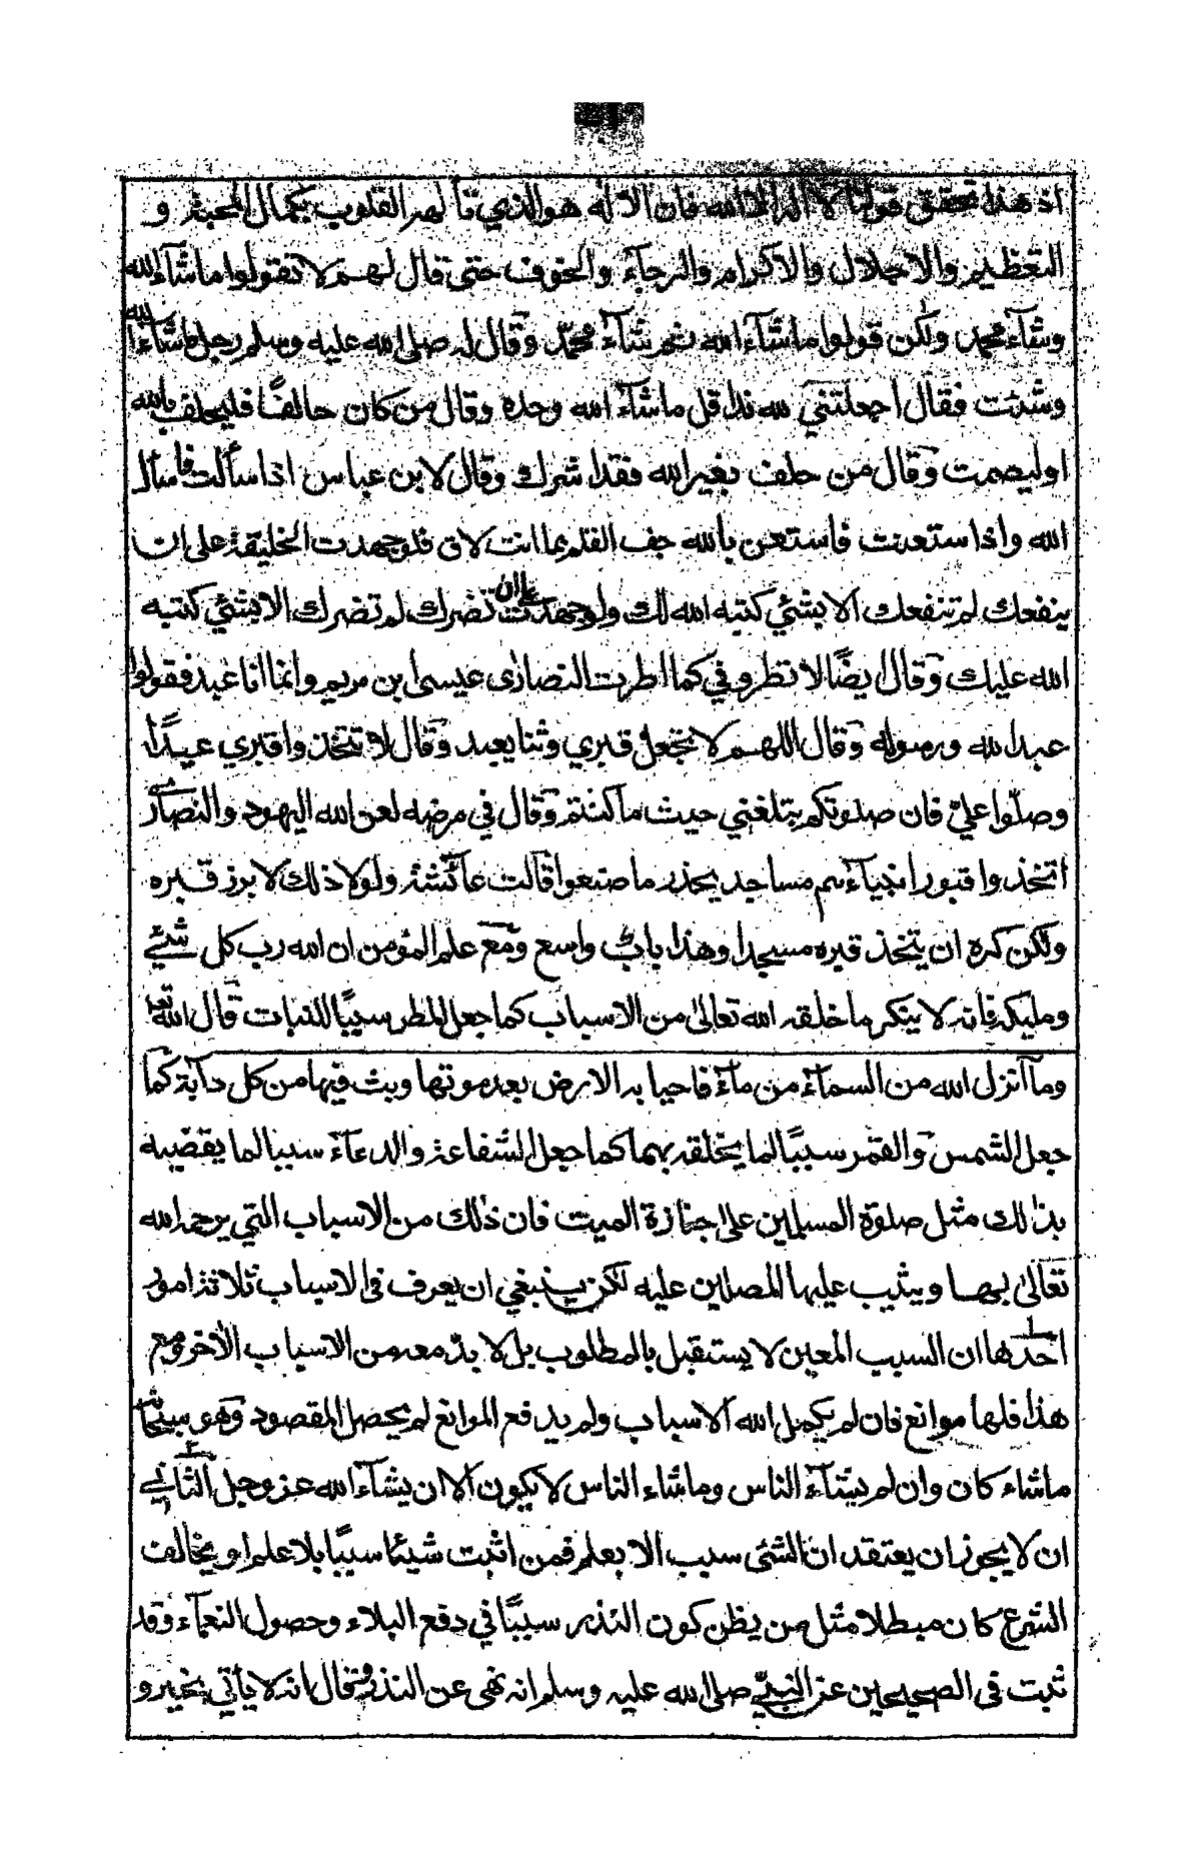 اذ هذا تحقق قولنا لا اله الا الله فان الاله هو الذي تألهه القلوب بكمال المحبة و
التعظيم والاجلال والاكرام والرجآء والخوف حتى قال لهم لا تقولوا ماشآء الله
وشآء محمد ولكن قولوا ماشآء الله ثم شآء محمّد وقال له صلى الله عليه وسلم رجل ماشآء الله
وشئت فقال اجعلتني لله ندا قل ماشآء الله وحده وقال من كان حالفًا فليحلف بالله
او ليصمت وقال من حلف بغير الله فقد اشرك وقال لابن عباس اذا سألت فاسأل
الله واذا ستعنت فاستعن بالله جف القلم بما انت لاق فلو جهدت الخليقة على ان
ينفعك لم تنفعك الا بشئي كتبه الله لك ولو جهدت على ان تضرك لم تضرك الا بشئي كتبه
الله عليك وقال ايضًا لا تطروني كما اطرت النصارى عيسى ابن مريم وانما انا عبد فقولوا
عبد الله ورسوله وقال اللهم لا تجعل قبري وثنا يعبد وقال لا تتخذوا قبري عيدًا
وصلّوا عليّ فان صلوتكم تبلغني حيث ما كنتم وقال في مرضه لعن الله اليهود والنصارى
اتخذوا قبور انبيآءهم مساجد يحذر ما صنعوا قالت عآئشة ولولا ذلك لابرز قبره
ولكن كره ان يتخذ قبره مسجدا وهذا باب واسع ومع علم المؤمن ان الله رب كل شئي
ومليكه فانه لا ينكر ما خلقه الله تعالى من الاسباب كما جعل المطر سببًا للنبات قال الله تعا
ومآ انزل الله من السمآء من مآء فاحيا به الارض بعد موتها وبث فيها من كل دآبة كما
جعل الشمس والقمر سببًا لما يخلقه بهما كما جعل الشفاعة والدعآء سببا لما يقضيه
بذالك مثل صلوة المسلمين على جنازة الميت فان ذلك من الاسباب التي يرحمه الله
تعالى بها ويثيب عليها المصلين عليه لكن ينبغي ان يعرف فى الاسباب ثلاثة امور
احدها ان السبب المعين لا يستقبل بالمطلوب بل لا بدّ معه من الاسباب الأخر ومع
هذا فلها موانع فان لم يكمل الله الاسباب ولم يدفع الموانع لم يحصل المقصود وهو سبحانه
ماشاء كان وان لم يشآء الناس وما شاء الناس لا يكون الا ان يشآء الله عز وجل الثاني
ان لا يجوز ان يعتقد ان الشئى سبب الا بعلم فمن اثبت شيئا سببًا بلا علم او يخالف
الشرع كان مبطلا مثل من يظن كون النذر سببًا في دفع البلاء وحصول النعمآء وقد
ثبت فى الصحيحين عن النبيّ صلى الله عليه وسلم انه نهى عن النذر وقال انه لا يأتي بخير و